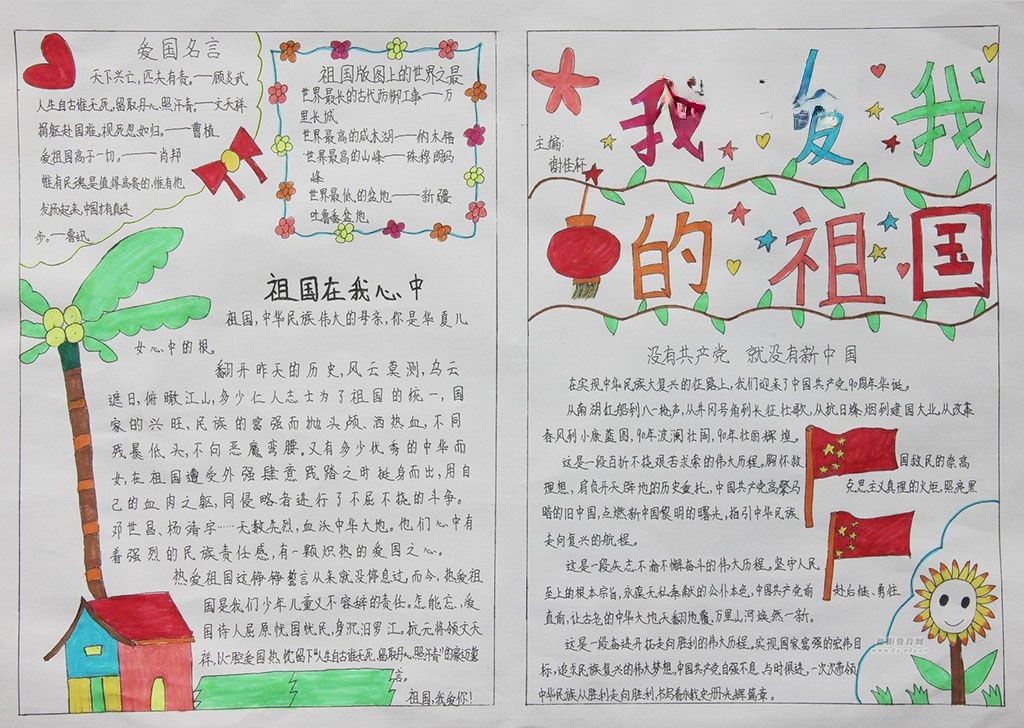 爱国名言
天下兴亡,匹夫有责。——顾炎武
人生自古谁无死,留取丹心照汗青。——文天祥
捐躯赴国难,视死忽如归。——曹植
爱祖国高于一切。——肖邦
惟有民魂是值得高贵的,惟有他
发扬起来,中国才有真进
步。——鲁迅
祖国版图上的世界之最
世界最长的古代防御工事——万
里长城
世界最高的咸水湖——纳木错
世界最高的山峰——珠穆朗玛
峰
世界最低的盆地——新疆
吐鲁番盆地
祖国在我心中
祖国,中华民族伟大的母亲,你是华夏儿
女心中的根。
翻开昨天的历史,风云莫测,乌云
遮日,俯瞰江山,多少仁人志士为了祖国的统一,国
家的兴旺,民族的富强而抛头颅、洒热血,不同
残暴低头,不向恶魔弯腰。又有多少优秀的中华而
女,在祖国遭受外强肆意践踏之时挺身而出,用自
己的血肉之躯,同侵略者进行了不屈不挠的斗争。
邓世昌、杨靖宇……无数先烈,血沃中华大地。他们心中有
着强烈的民族责任感,有一颗炽热的爱国之心。
热爱祖国这铮铮誓言从来就没停息过,而今,热爱祖
国是我们少年儿童义不容辞的责任。怎能忘,爱
国诗人屈原忧国忧民,身沉汨罗江。抗元将领文天
祥,以一腔爱国热忱留下“人生自古谁无死,留取丹心照汗青”的豪迈誓
言。
祖国,我爱你!
我爱我
主编:
谢佳轩
的祖国
没有共产党 就没有新中国
在实现中华民族大复兴的征路上,我们迎来了中国共产党90周年华诞。
从南湖红船到八一枪声,从井冈号角到长征壮歌,从抗日烽烟到建国大业,从改革
春风到小康蓝图,90年波澜壮阔,90年壮丽辉煌。
这是一段百折不挠艰苦求索的伟大历程。胸怀救国救民的崇高
理想,肩负开天辟地的历史重托,中国共产党高擎马克思主义真理的火炬,照亮黑
暗的旧中国,点燃新中国黎明的曙光,指引中华民族
走向复兴的航程。
这是一段矢志不渝不懈奋斗的伟大历程。坚守人民
至上的根本宗旨,永葆无私奉献的公仆本色,中国共产党前赴后继、勇往
直前,让古老的中华大地天翻地覆,万里山河焕然一新。
这是一段奋进开拓走向胜利的伟大历程。实现国家富强的宏伟目
标,追求民族复兴的伟大梦想,中国共产党自强不息、与时俱进,一次次带领
中华民族从胜利走向胜利,书写着